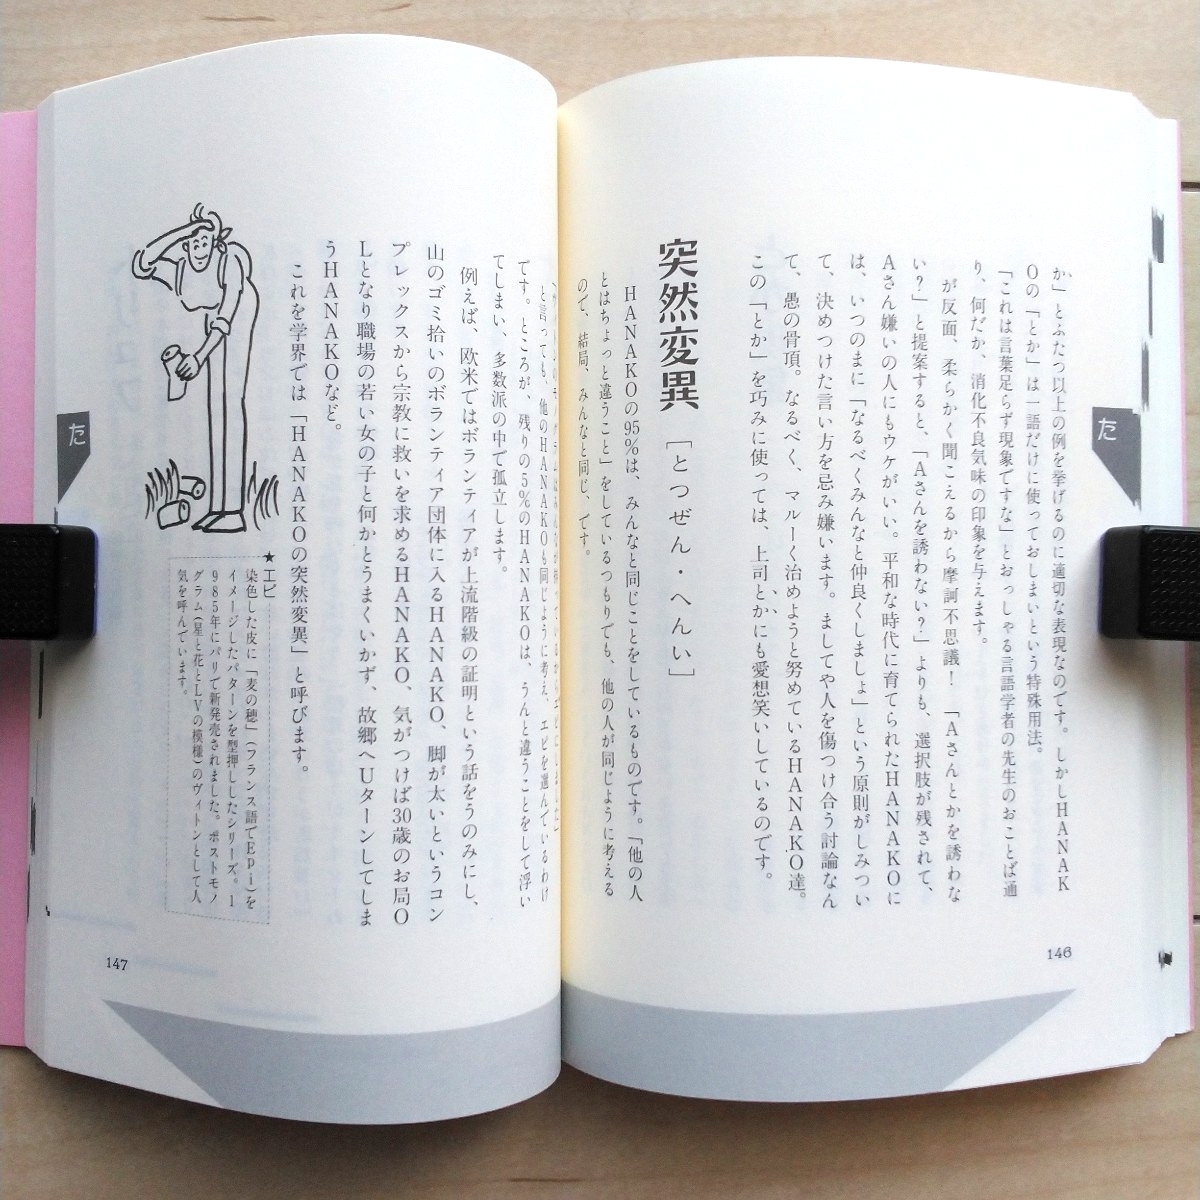 か」とふたつ以上の例を挙げるのに適切な表現なのです。しかしHANAK
Oの「とか」は一語だけに使っておしまいという特殊用法。
「これは言葉足らず現象ですな」とおっしゃる言語学者の先生のおことば通
り、何だか、消化不良気味の印象を与えます。
が反面、柔らかく聞こえるから摩訶不思議！「Aさんとかを誘わな
い？」と提案すると、「Aさんを誘わない？」よりも、選択肢が残されて、
Aさん嫌いの人にもウケがいい。平和な時代に育てられたHANAKOに
は、いつのまに「なるべくみんなと仲良くしましょ」という原則がしみつい
て、決めつけた言い方を忌み嫌います。ましてや人を傷つけ合う討論なん
て、愚の骨頂。なるべく、マルーく治めようと努めているHANAKO達。
この「とか」を巧みに使っては、上司とかにも愛想笑いしているのです。
突然変異［とつぜん・へんい］
HANAKOの95％は、みんなと同じことをしているものです。「他の人
とはちょっと違うこと」をしているつもりでも、他の人が同じように考える
ので、結局、みんなと同じ、です。
と言っても、他のHANAKOも同じように考え、エピを選んでいるわけ
です。ところが、残りの5％のHANAKOは、うんと違うことをして浮い
てしまい、多数派の中で孤立します。
例えば、欧米ではボランティアが上流階級の証明という話をうのみにし、
山のゴミ拾いのボランティア団体に入るHANAKO、脚が太いというコン
プレックスから宗教に救いを求めるHANAKO、気がつけば30歳のお局O
Lとなり職場の若い女の子と何かとうまくいかず、故郷へUターンしてしま
うHANAKOなど。
これを学界では「HANAKOの突然変異」と呼びます。
★エピ
染色した皮に「麦の穂」（フランス語でEpi）を
イメージしたパターンを型押ししたシリーズ。1
985年にパリで新発売されました。ポストモノ
グラム（星と花とLVの模様）のヴィトンとして人
気を呼んでいます。
た
た
146
147